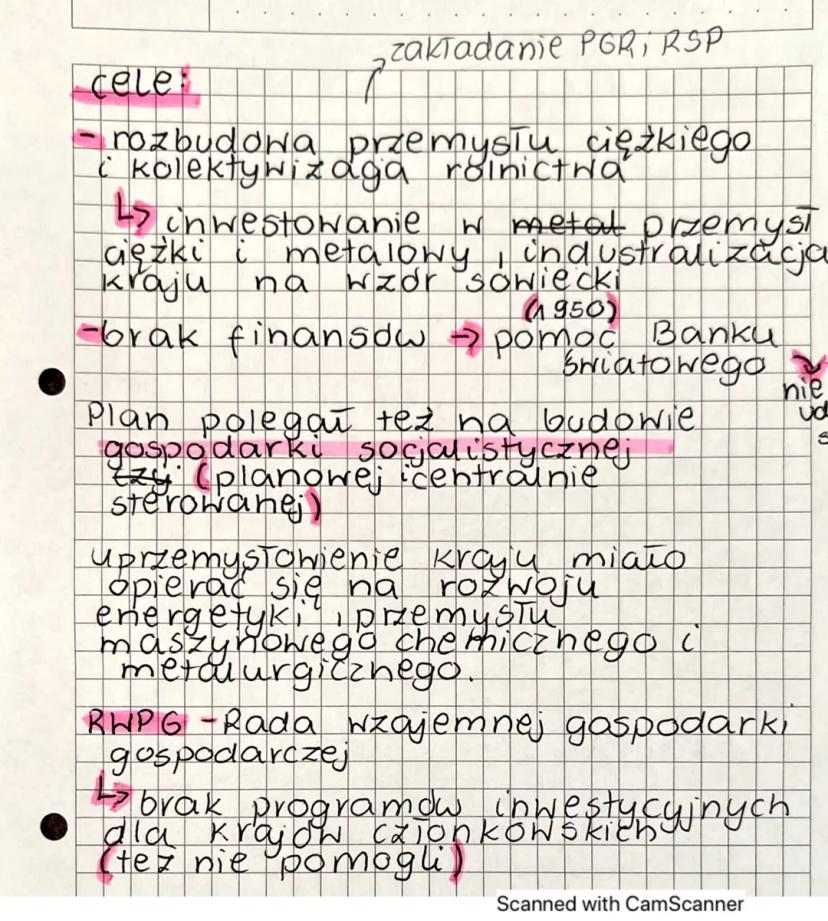 zakładanie PGR i RSP
cele:
- rozbudowa przemysłu ciężkiego
i kolektywizacja rolnictwa
↳ inwestowanie w metal przemysł
ciężki i metalowy, industralizacja
kraju na wzór sowiecki
(1950)
- brak finansów → pomoc Banku
Światowego ↘
nie
ud
s
Plan polegał też na budowie
gospodarki socjalistycznej
czy (planowej i centralnie
sterowanej)
uprzemysłowienie kraju miało
opierać się na rozwoju
energetyki, przemysłu
maszynowego chemicznego i
metalurgicznego.
RWPG - Rada wzajemnej gospodarki
gospodarczej
↳ brak programów inwestycyjnych
dla krajów członkowskich
(też nie pomogli)
Scanned with CamScanner